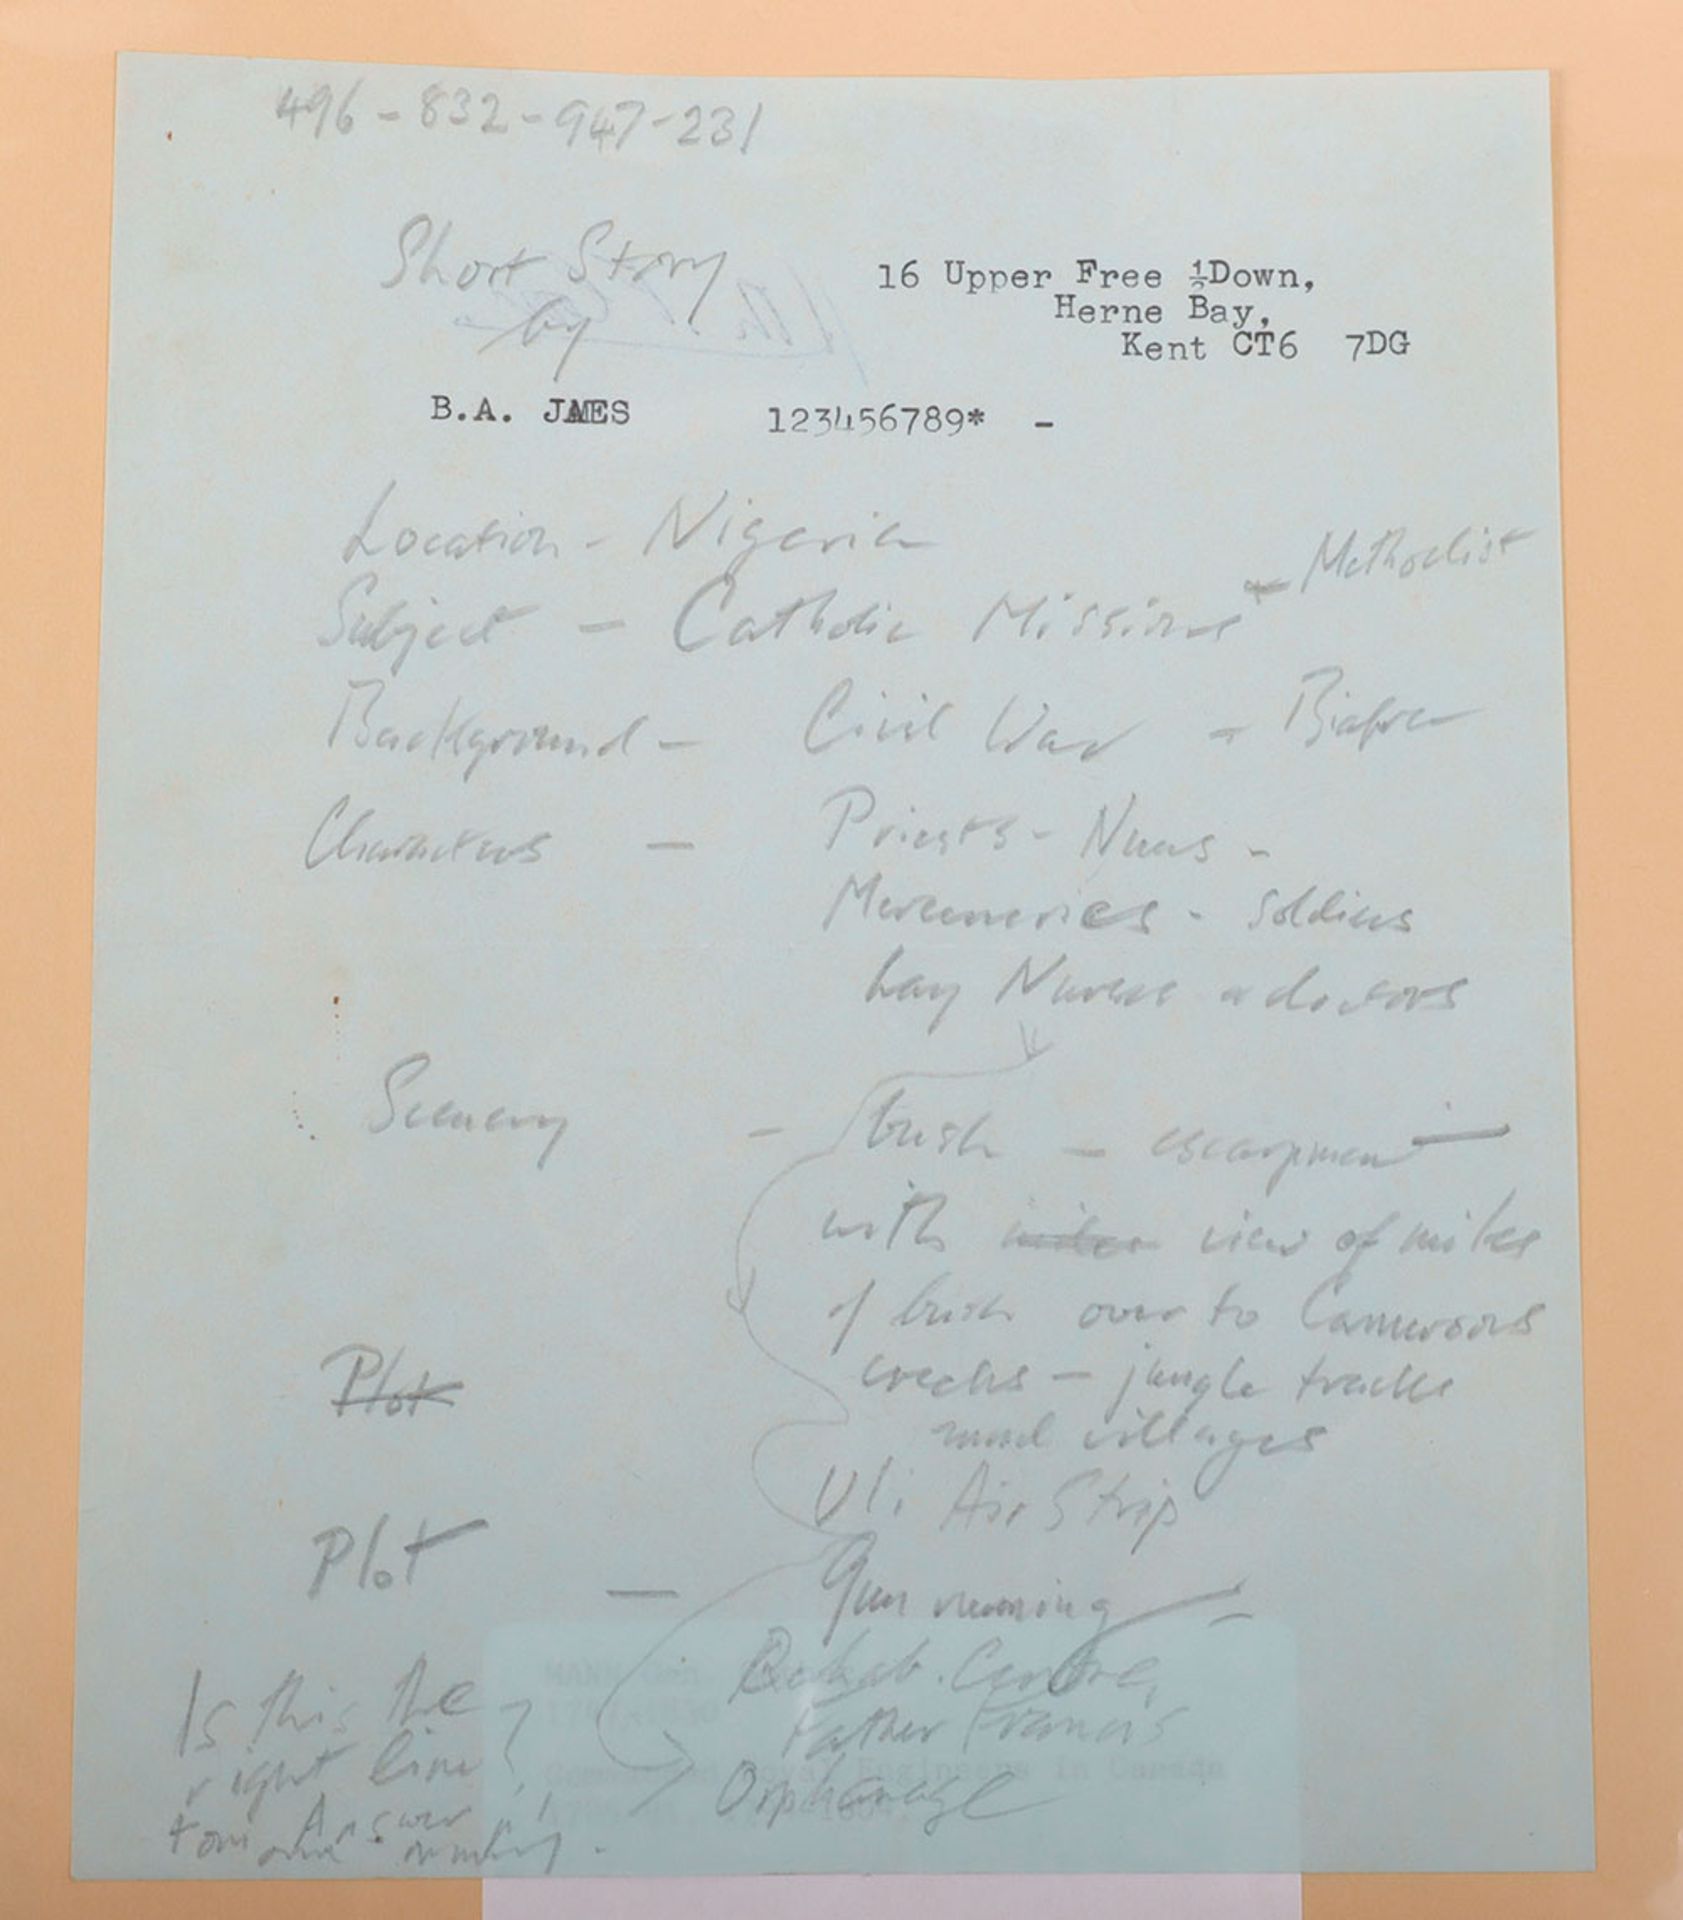 496 - 832 - 947 - 231
Short Story
by
16 Upper Free ½Down,
Herne Bay,
Kent CT6 7DG
B.A. JAMES 123456789* -
Location - Nigeria
Subject - Catholic Missions + Methodist
Background - Civil War - Biafra
Characters - Priests - Nuns -
Mercenaries - soldiers
Lay Nurses & doctors
Scenery - bush - escarpment -
with miles view of miles
of bush over to Cameroons
creeks - jungle tracks
mud villages
Uli Air Strip
Plot
Plot - Gun running -
Rehab. Centre,
Father Francis
Orphanage
Is this the
right line ?
Answer
tomorrow morning.
MANN Gen.
Commanded Royal Engineers in Canada